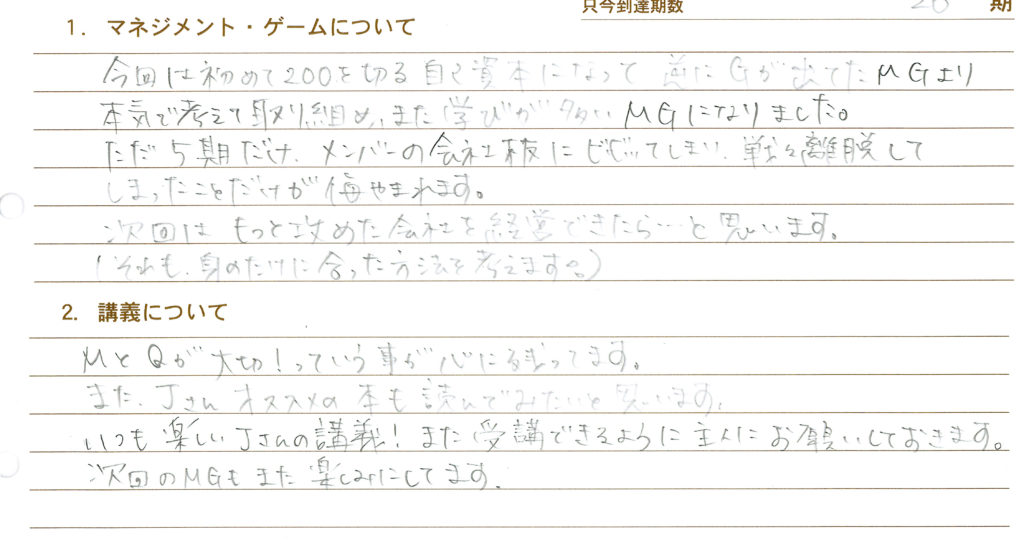 只今到達期数 20 期
1. マネジメント・ゲームについて
今回は初めて200を切る自己資本になって 逆にGが出てたMGより
本気で考えて取り組め、また学びが多い MGになりました。
ただ5期だけ、メンバーの会社木板にビビってしまい、戦々離脱して
しまったことだけが悔やまれます。
次回は もっと攻めた会社を経営できたら…と思います。
(それも、身のたけに合った方法を考えます。)
2. 講義について
MとQが大切!っていう事が心に残ってます。
また、Jさん オススメの本も読んでみたいと思います。
いつも楽しいJさんの講義! また受講できるように主人にお願いしておきます。
次回のMGもまた楽しみにしてます.